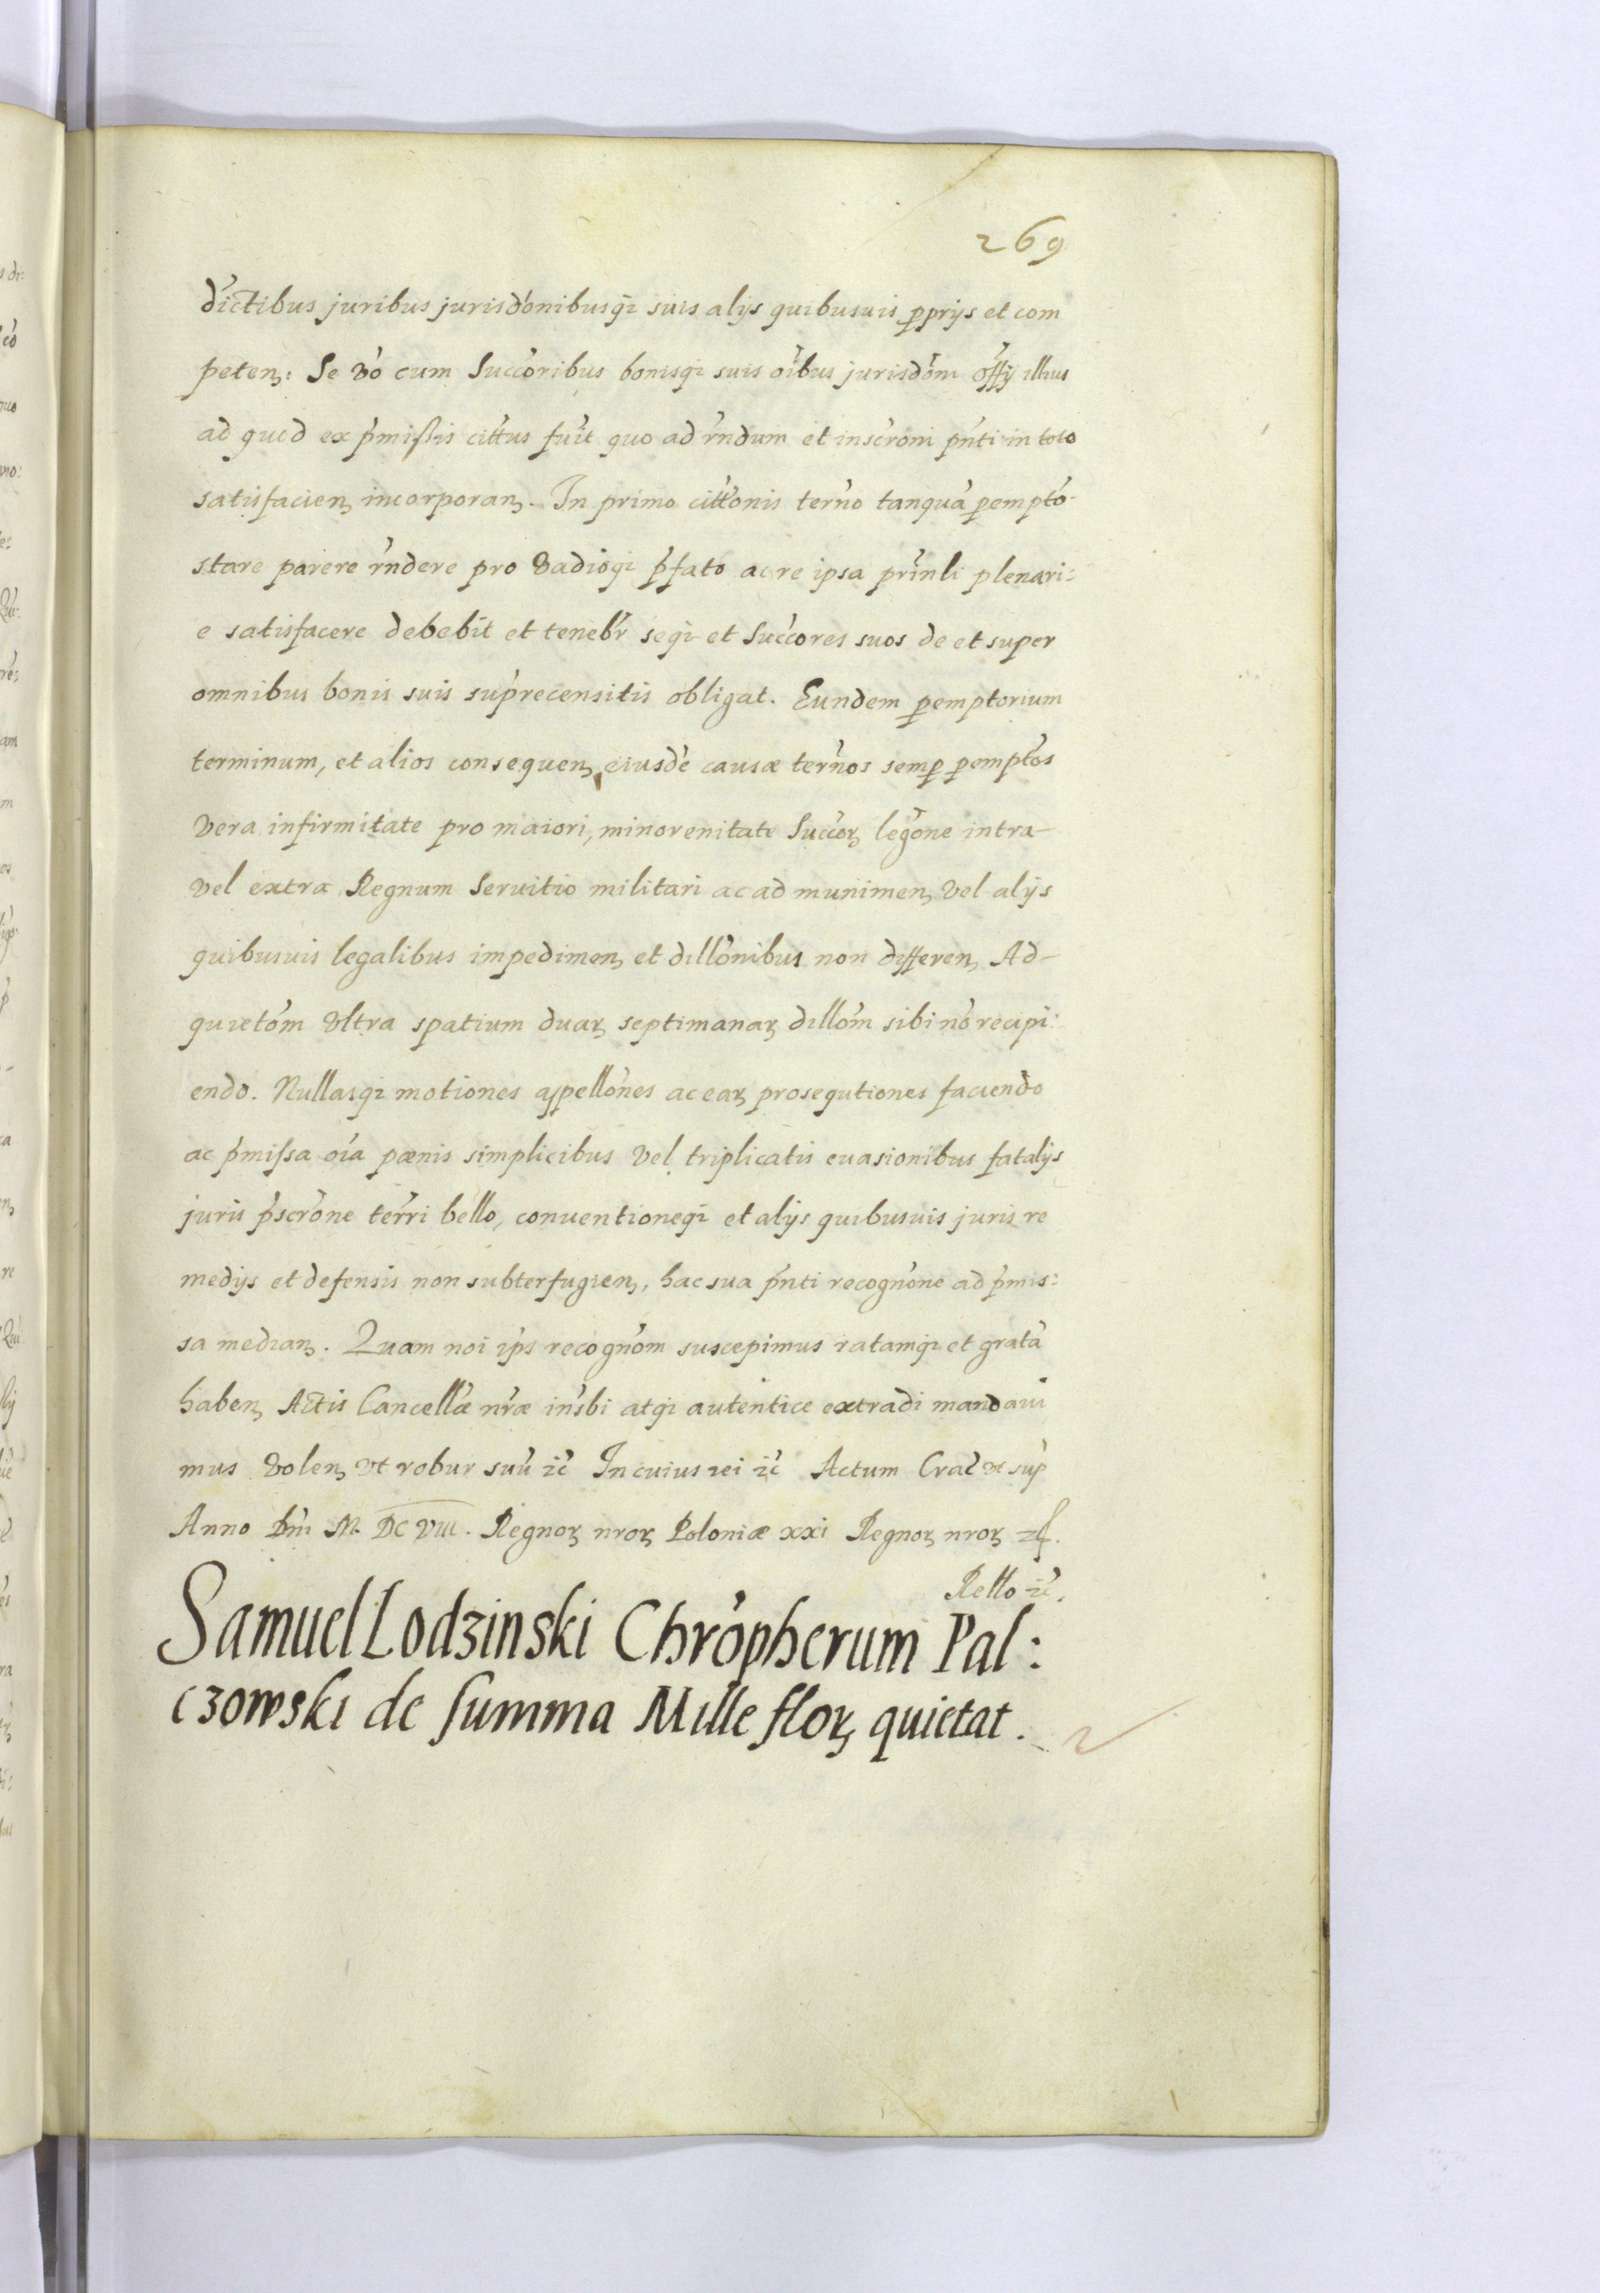 269
dictibus juribus jurisdónibusqȝ suis alijs quibusuis ꝑprijs et com
petenȝ: Se vó cum Succóribus bonisqȝ suis oíbus jurisdóni offy illius
ad quod ex pŕmissis cittus fuít quo ad rńdum et inscróni pńti in toto
satisfacienȝ incorporanȝ. In primo cittónis terńo tanquá ꝑemptó
stare parere rńdere pro vadioqȝ pŕfato ac re ipsa prińli plenari:
e satisfacere debebit et tenebŕ seqȝ et Succóres suos de et super
omnibus bonis suis supŕecensitis obligat. Eundem ꝑemptorium
terminum, et alios consequenȝ eiusdé causæ terńos semꝑ ꝑemptós
vera infirmitate pro maiori, minorenitate Succórȝ legóne intra
vel extra Regnum Seruitio militari ac ad munimenȝ vel alijs
quibusuis legalibus impedimenȝ et dillónibus non differenȝ Ad-
quietóm vltra spatium duarȝ septimanarȝ dillóm sibi nó recipi:
endo. Nullasqȝ motiones appellónes ac earȝ prosequtiones faciendo
ac pŕmissa oía pœnis simplicibus vel triplicatis euasionibus fatalijs
juris pŕscróne terŕi bello, conuentioneqȝ et alijs quibusuis juris re
medijs et defensis non subterfugienȝ, hac sua pńti recognóne ad pŕmis:
sa medianȝ. Quam noi ips recognóm suscepimus ratamqȝ et gratá
habenȝ Actis Cancellæ nŕæ insbi atqȝ autentice extradi mandaui
mus volenȝ vt robur suú ꝛć In cuius rei ꝛć Actum Crać vt sup
Anno Dńi M. DC VIII. Regnorȝ nrorȝ Poloniæ xxi Regnorȝ nrorȝ
Rello ꝛć.
Samuel Lodzinski Chrópherum Pal:
czowski de summa Mille florȝ quietat.